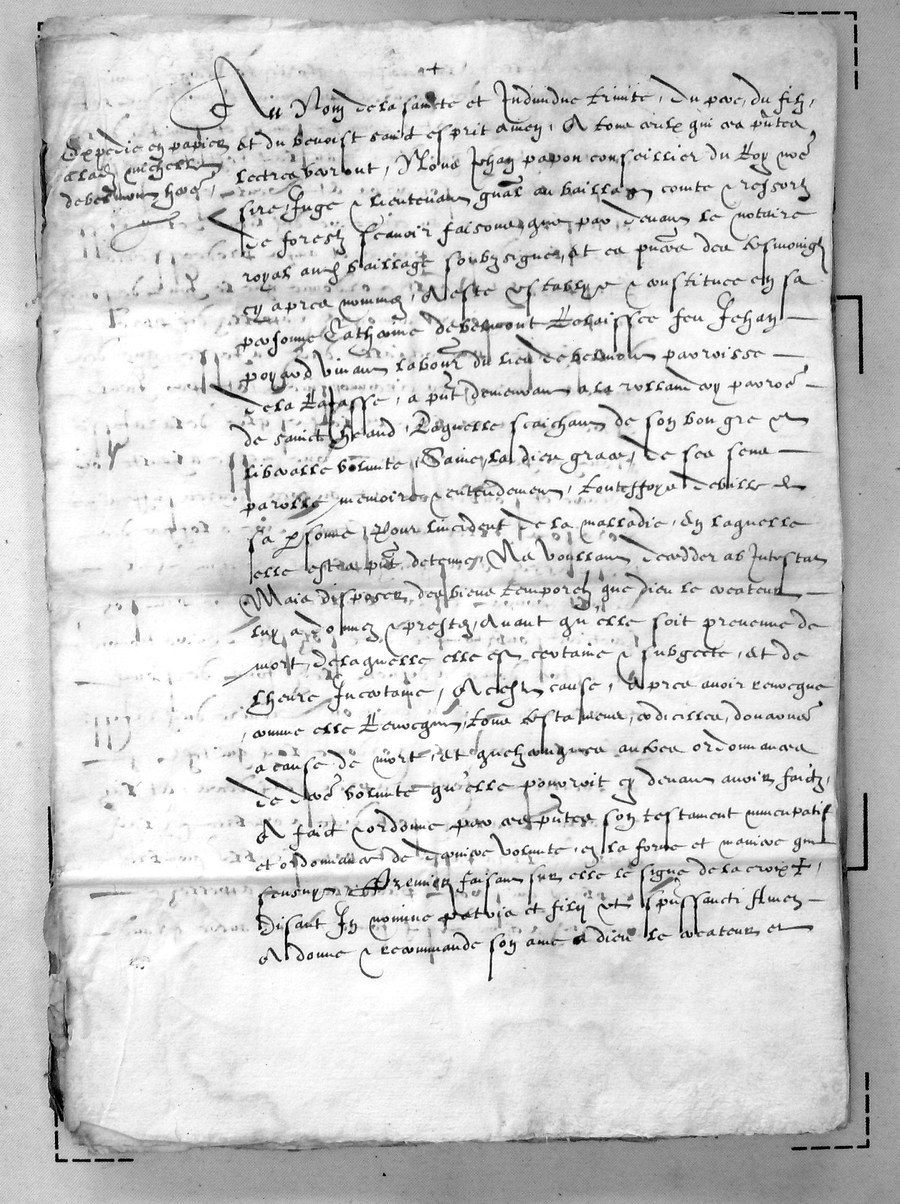 +
Au Nom de la saincte et Individue trinite, du pere, du filz,
et du benoist sainct esprit amen, A tous ceulx qui ces pntes
lectres verront, Nous Jehan papon conseillier du Roy nre
sire, Juge & lieutenant gnal au bailliage comte & ressort
de forestz scavoir faisons que par devant le notaire
royal audit bailliage soubzsigne, et es pnces des tesmoingz
cy apres nommez, A este establye & constituee en sa
personne Catherine de belmont Relaissee feu Jehan
poyard vivant labour du lieu de belmont parroisse
de la Rajasse, a pnt demeurant a la rullandiey parroe
de sainct heand, Laquelle scaichant de son bon gre et
liberalle volunte, Saine, la dieu grace, de ses sens
parolle memoire & entendement, toutesfoys debille de
sa personne, Pour lincident de la malladie, En laquelle
elle est a pnt detenue, Ne voullant decedder ab Intestat
Mais disposer des biens temporelz que dieu le createur
luy a donnez & prestez, Avant qu'elle soit prevenue de
mort, de laquelle elle est certaine & subgecte, et de
lheure Incertaine, A ceste cause, Apres avoir revocque
comme elle Revocque, tous testamens, codicilles, donaons
a cause de mort, et quelzconques autres ordonnances
de dere volunte qu'elle pourroit cy devant avoir faictz,
A faict & ordonne par ces pntes son testament nuncupatif
et ordonnance de derniere volunte, en la forme et maniere que
sensuyt, Premier faisant sur elle le signe de la croix +,
disant In nomine patris et filij et spussancti Amen
A donne & recommande son ame a dieu le createur et
Expedie en papier
a lad michelle
de belmont here